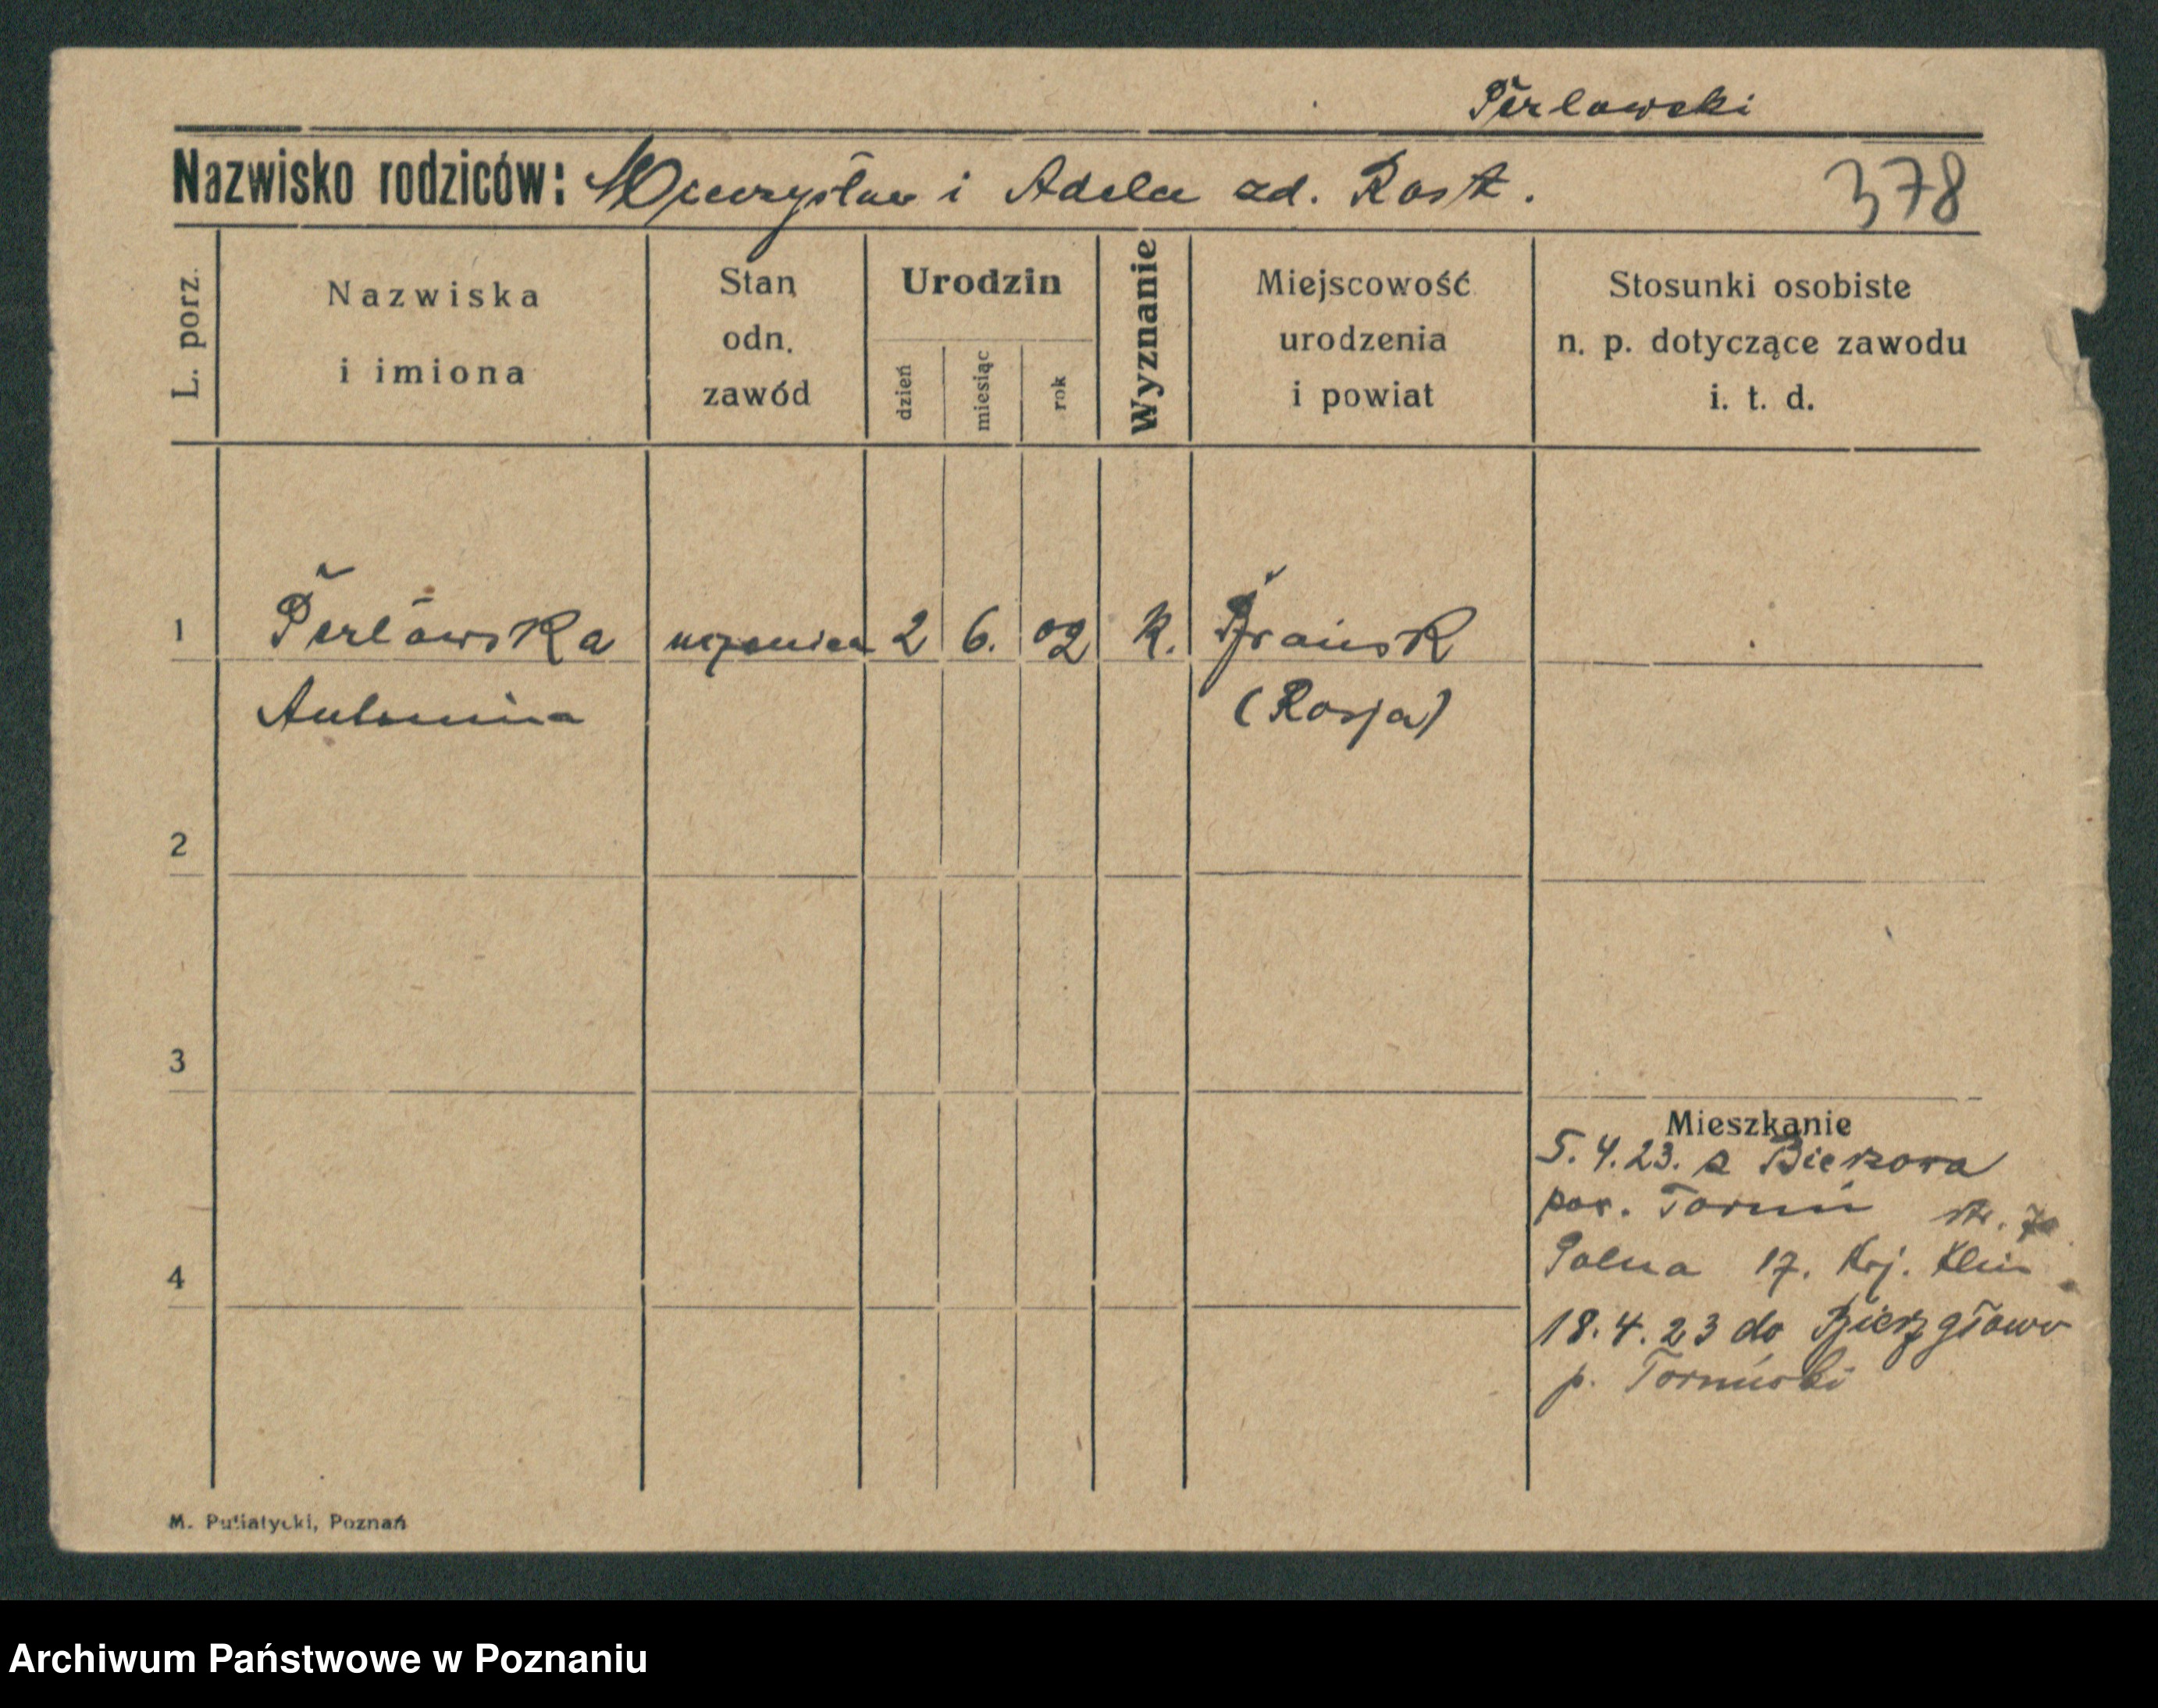 Perlowski
Nazwisko rodziców: Mieczysław i Adela zd. Rost.
378
L. porz.
Nazwiska
i imiona
Stan
odn.
zawód
Urodzin
dzień
miesiąc
rok
Wyznanie
Miejscowość
urodzenia
i powiat
Stosunki osobiste
n. p. dotyczące zawodu
i. t. d.
1 Perlowska uczenica 2 6. 02 K. Brańsk
Antonina (Rosja)
2
3
Mieszkanie
5.4.23. z
pow. Toruń
4
Polna 17.
18.4.23 do Bierzgłowo
p. Toruński
M. Putiatycki, Poznań
Archiwum Państwowe w Poznaniu